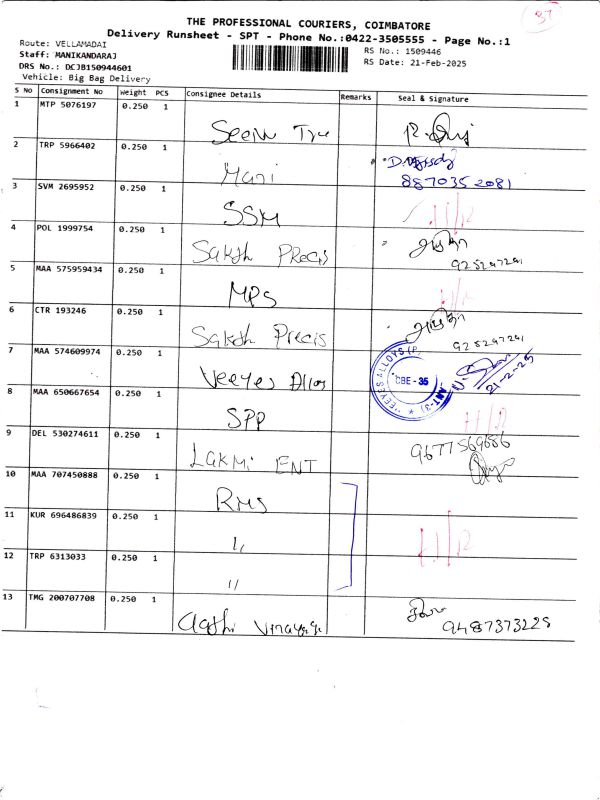 37
THE PROFESSIONAL COURIERS, COIMBATORE
Delivery Runsheet - SPT - Phone No.:0422-3505555 - Page No.:1
Route: VELLAMADAI
RS No.: 1509446
Staff: MANIKANDARAJ
RS Date: 21-Feb-2025
DRS No.: DCJB150944601
Vehicle: Big Bag Delivery
S No Consignment No Weight PCS Consignee Details Remarks Seal & Signature
1 MTP 5076197 0.250 1
2 TRP 5966402 0.250 1 Mani
8870352081
3 SVM 2695952 0.250 1 SSM
4 POL 1999754 0.250 1 Saksh Precis
925297291
5 MAA 575959434 0.250 1 MPS
6 CTR 193246 0.250 1 Saksh Precis
925297291
7 MAA 574609974 0.250 1 Veeyes Alloy VEEYES ALLOYS (P CBE - 35 21-2-25
8 MAA 650667654 0.250 1 SPP
9 DEL 530274611 0.250 1 LAKMI ENT 9677569686
10 MAA 707450888 0.250 1 RMS
11 KUR 696486839 0.250 1 "
12 TRP 6313033 0.250 1 "
13 TMG 200707708 0.250 1 9487373228